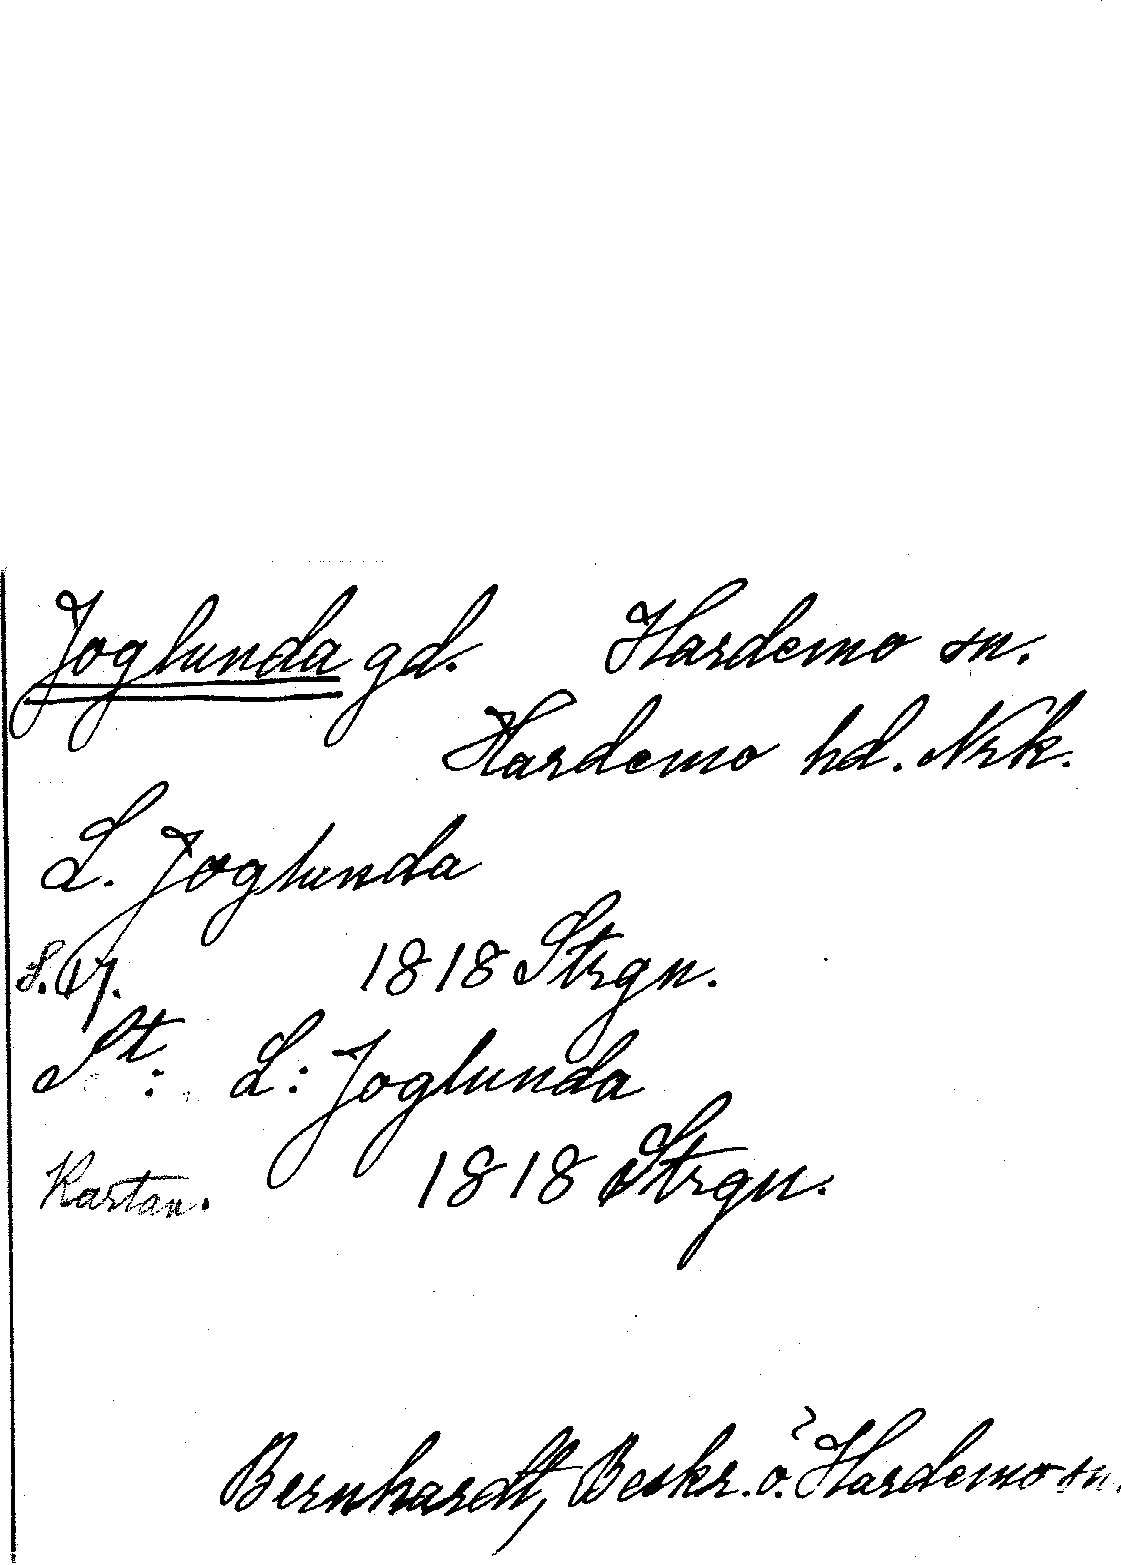 Joglunda gd. Hardemo sn.
Hardemo hd. Nrk.
L. Joglunda
S. 17. 1818 Strgn.
St: L: Joglunda
Kartan. 1818 Strgn.
Bernhardt, Beskr. ö. Hardemo sn.